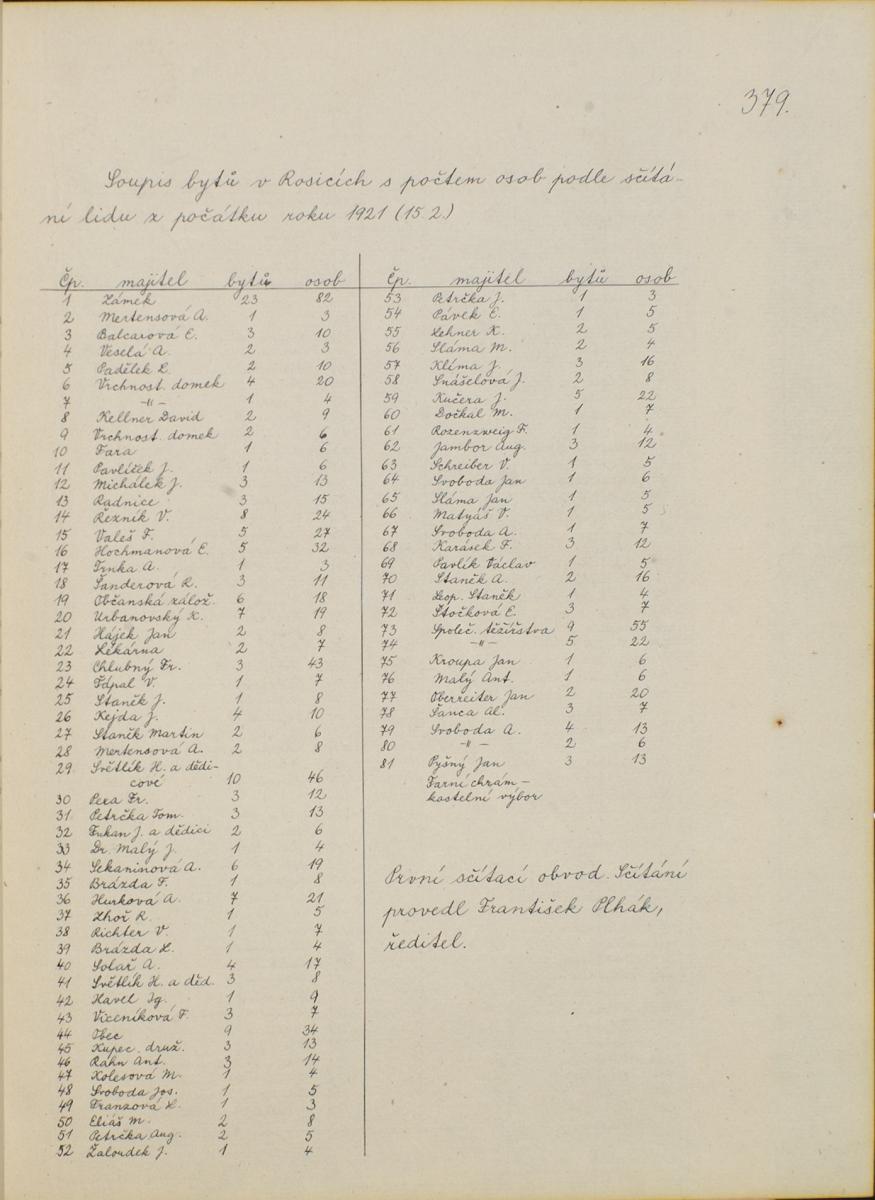 379.
Soupis bytů v Rosicích s počtem osob podle sčítá-
ní lidu z počátku roku 1921 (15.2.)
Čp. majitel bytů osob
1 Zámek 23 82
2 Mertensová A. 1 3
3 Balcarová E. 3 10
4 Veselá A. 2 3
5 Padělek L. 2 10
6 Vrchnost. domek 4 20
7 -"- 1 4
8 Kellner David 2 9
9 Vrchnost. domek 2 6
10 Fara 1 6
11 Pavlíček J. 1 6
12 Michálek J. 3 13
13 Radnice 3 15
14 Řezník V. 8 24
15 Valeš F. 5 27
16 Hochmanová E. 5 32
17 Trnka A. 1 3
18 Šanderová R. 3 11
19 Občanská zálož. 6 18
20 Urbanovský K. 7 19
21 Hájek Jan 2 8
22 Lékárna 2 7
23 Chlubný Fr. 3 43
24 Ťápal V. 1 7
25 Staněk J. 1 8
26 Kejda J. 4 10
27 Staněk Martin 2 6
28 Mertensová A. 2 8
29 Světlík H. a dědi-
cové 10 46
30 Pexa Fr. 3 12
31 Petrčka Tom. 3 13
32 Fukan J. a dědici 2 6
33 Dr. Malý J. 1 4
34 Sekaninová A. 6 19
35 Brázda F. 1 8
36 Hurková A. 7 21
37 Zhoř R. 1 5
38 Richter V. 1 7
39 Brázda L. 1 4
40 Solař A. 4 17
41 Světlík H. a děd. 3 8
42 Havel Ig. 1 9
43 Viceníková F. 3 7
44 Obec 9 34
45 Kupec. druž. 3 13
46 Rahn Ant. 3 14
47 Kolesová M. 1 4
48 Svoboda Jos. 1 5
49 Franzová L. 1 3
50 Eliáš M. 2 8
51 Petrčka Aug. 2 5
52 Žaloudek J. 1 4
Čp. majitel bytů osob
53 Petrčka J. 1 3
54 Pávek E. 1 5
55 Lehner K. 2 5
56 Sláma M. 2 4
57 Klíma J. 3 16
58 Snášelová J. 2 8
59 Kučera J. 5 22
60 Dočkal M. 1 7
61 Rozenzweig F. 1 4
62 Jambor Aug. 3 12
63 Schreiber V. 1 5
64 Svoboda Jan 1 6
65 Sláma Jan 1 5
66 Matyáš V. 1 5
67 Svoboda A. 1 7
68 Karásek F. 3 12
69 Pavlík Václav 1 5
70 Staněk A. 2 16
71 Leop. Staněk 1 4
72 Štočková E. 3 7
73 Společ. těžířstva 9 55
74 -"- 5 22
75 Kroupa Jan 1 6
76 Malý Ant. 1 6
77 Oberreiter Jan 2 20
78 Šanca Al. 3 7
79 Svoboda A. 4 13
80 -"- 2 6
81 Pyšný Jan 3 13
Farní chrám -
kostelní výbor
První sčítací obvod. Sčítání
provedl František Plhák,
ředitel.